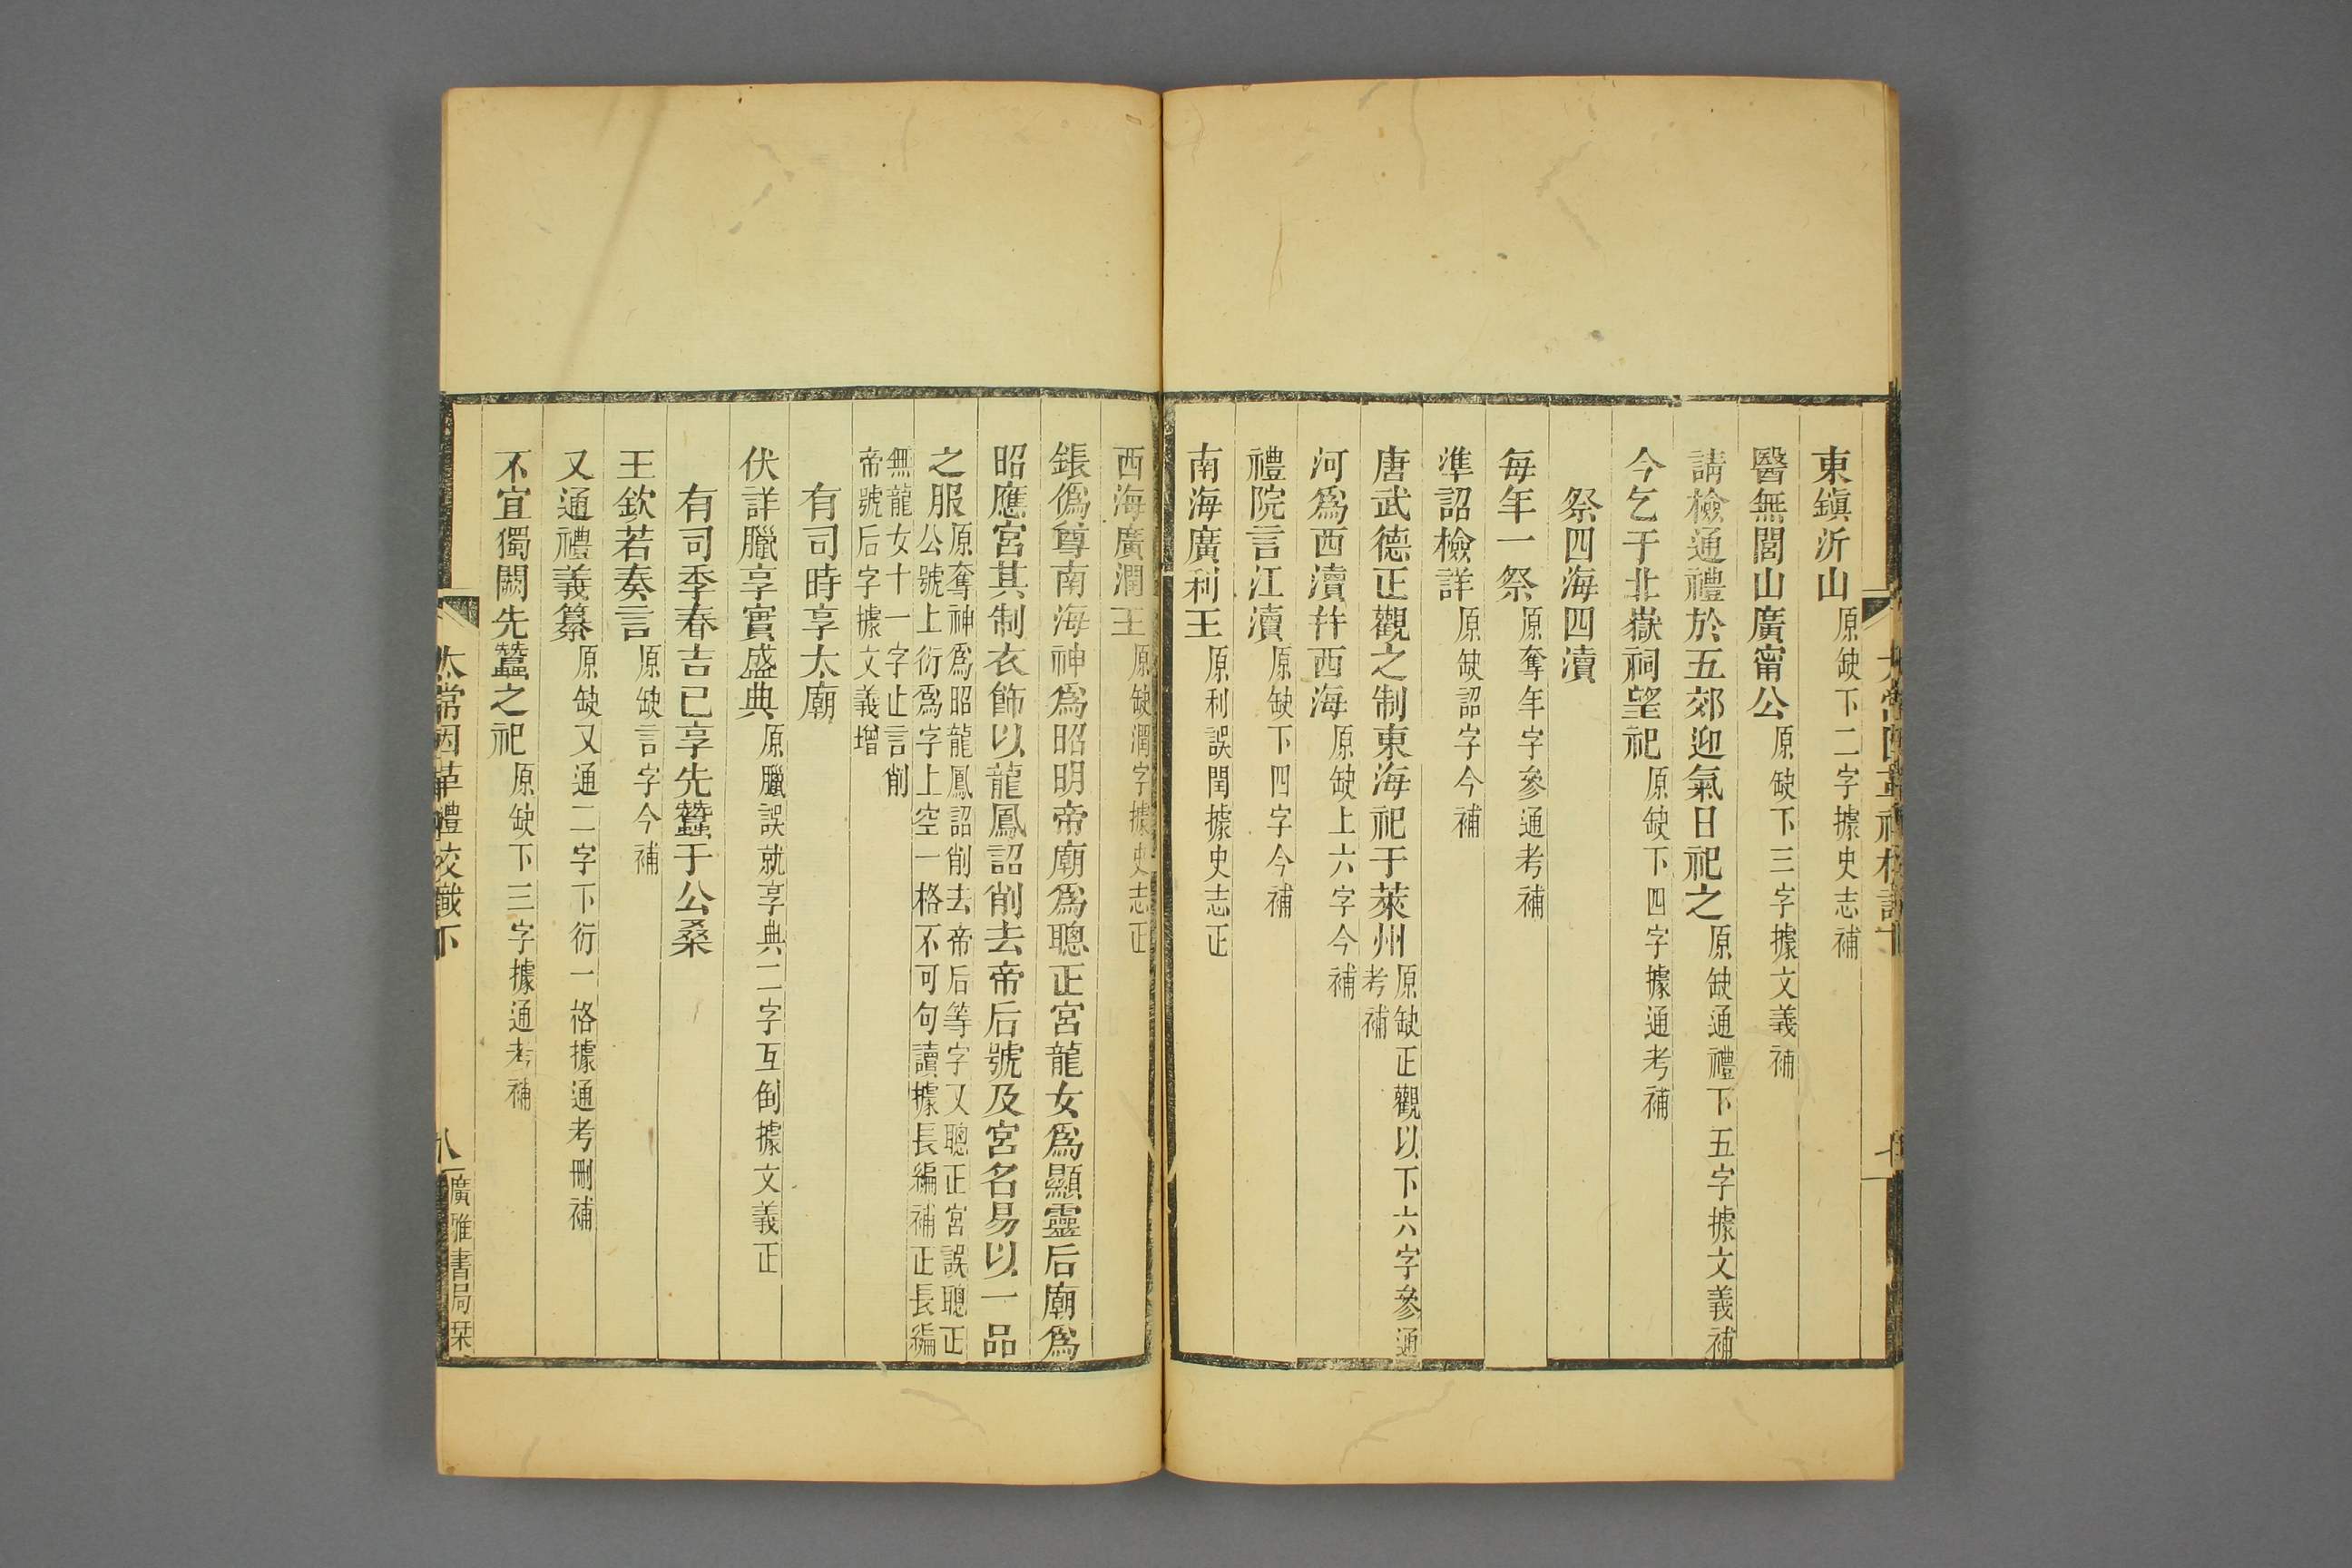 東鎮沂山原缺下二字據史志補
醫無閭山廣甯公原缺下三字據文義補
請檢通禮於五郊迎氣日祀之原缺通禮下五字據文義補
今乞于北嶽祠望祀原缺下四字據通考補
祭四海四瀆
每年一祭原奪年字參通考補
準詔檢詳原缺詔字今補
唐武德正觀之制東海祀于萊州原缺正觀以下六字參通考補
河爲西瀆并西海原缺上六字今補
禮院言江瀆原缺下四字今補
南海廣利王原利誤閏據史志正
西海廣潤王原缺潤字據史志正
鋹僞尊南海神爲昭明帝廟爲聰正宮龍女爲顯靈后廟爲
昭應宮其制衣飾以龍鳳詔削去帝后號及宮名易以一品
之服原奪神爲昭龍鳳詔削去帝后等字又聰正宮誤聰正
公號上衍爲字上空一格不可句讀據長編補正長編
無龍女十一字止言削
帝號后字據文義增
有司時享太廟
伏詳臘享實盛典原臘誤就享典二字互倒據文義正
有司季春吉巳享先蠶于公桑
王欽若奏言原缺言字今補
又通禮義纂原缺又通二字下衍一格據通考刪補
不宜獨闕先蠶之祀原缺下三字據通考補
太常因革禮校識下
八
廣雅書局栞